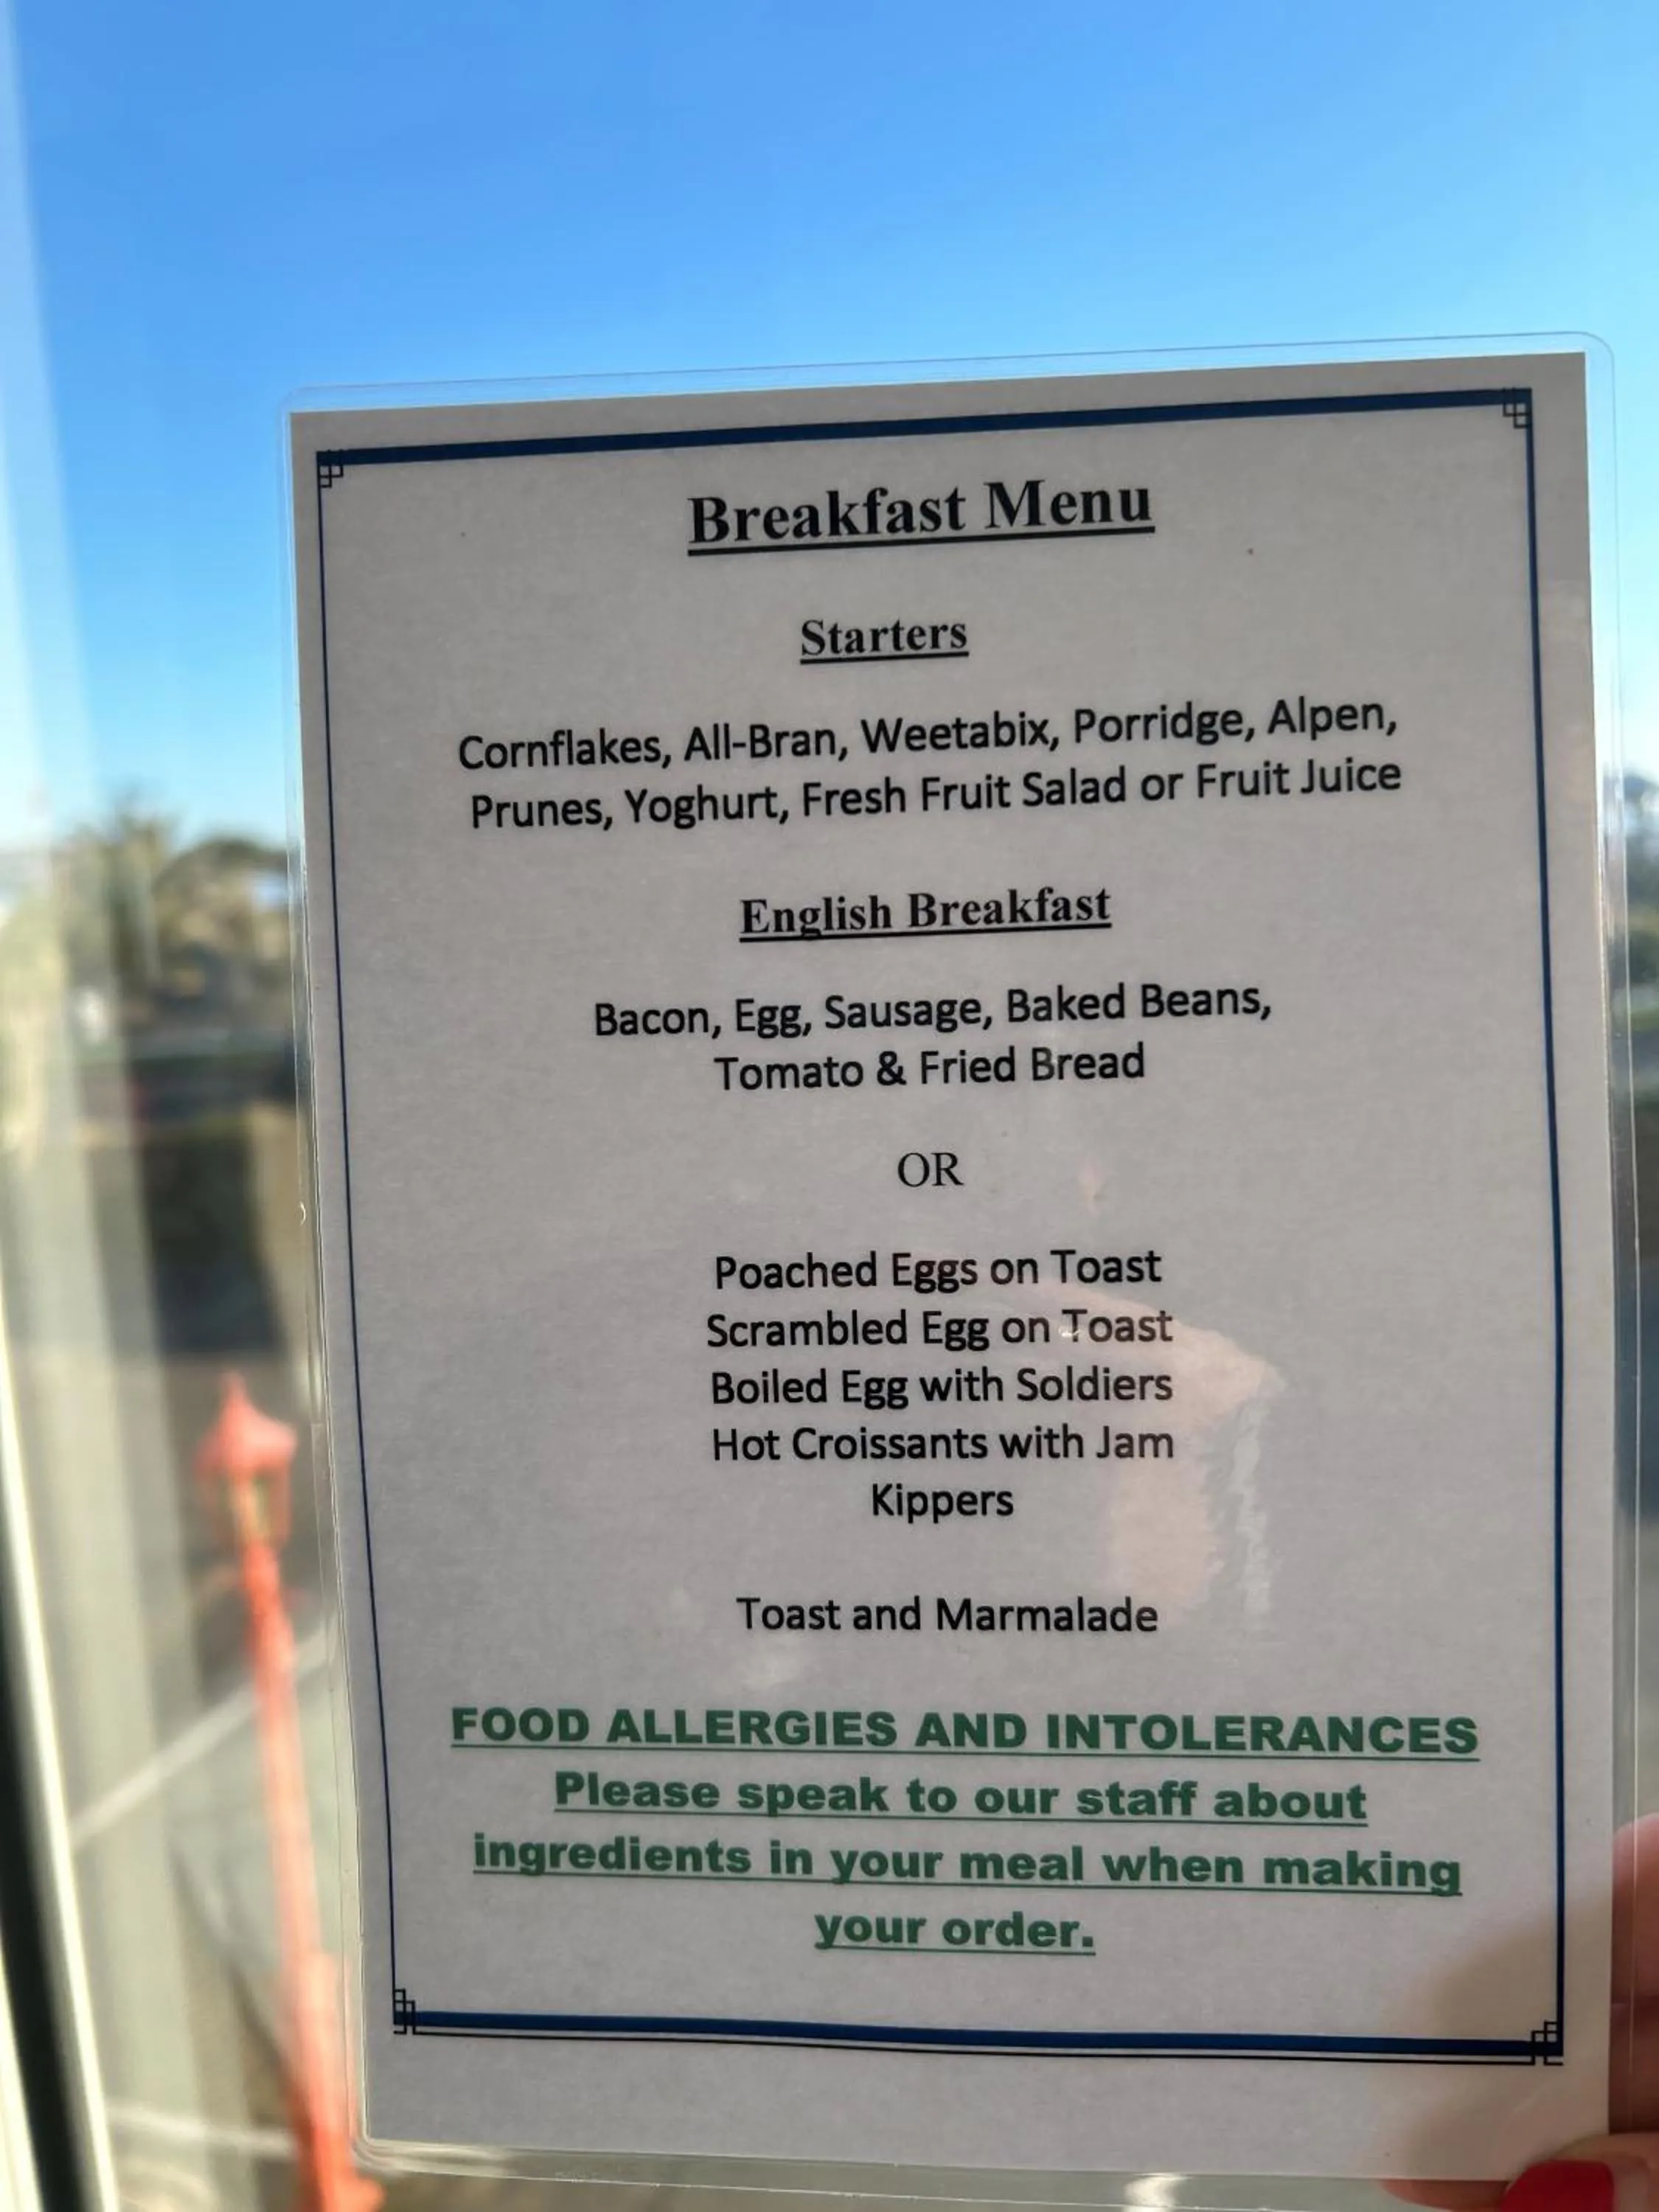 Breakfast Menu
Starters
Cornflakes, All-Bran, Weetabix, Porridge, Alpen,
Prunes, Yoghurt, Fresh Fruit Salad or Fruit Juice
English Breakfast
Bacon, Egg, Sausage, Baked Beans,
Tomato & Fried Bread
OR
Poached Eggs on Toast
Scrambled Egg on Toast
Boiled Egg with Soldiers
Hot Croissants with Jam
Kippers
Toast and Marmalade
FOOD ALLERGIES AND INTOLERANCES
Please speak to our staff about
ingredients in your meal when making
your order.